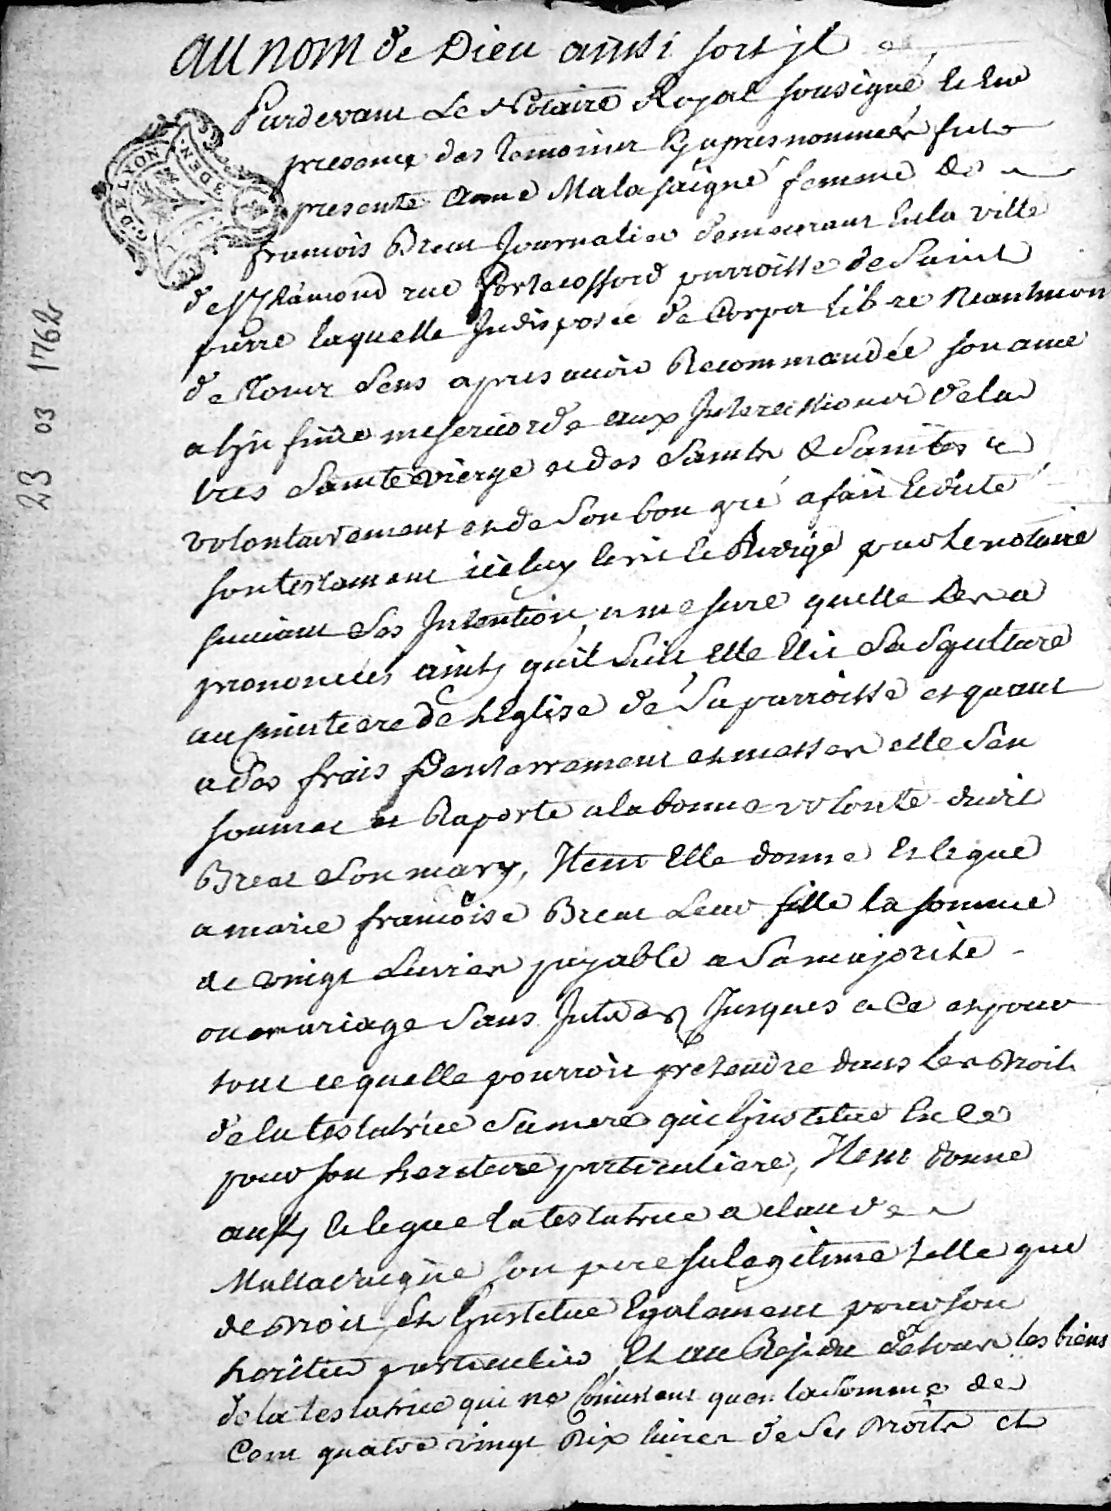 au nom de Dieu ainsi soit jl
Pardevant Le Notaire Royal sousigné et En
presence des temoins Cy apres nommés fute
presente Anne Malasaigne femme de
francois Breat Journalier demeurant En la ville
de St Chamond rue parroisse de Saint
pierre laquelle Indisposée de Corps libre Neantmoin
de tous sens apres avoir Recommandée son ame
a misericorde aux Intercessions de la
tres Sainte vierge et des Saints & Saintes
volontairement et de Son bon gré a fait Et dicté
son testament iceluy Ecrit Et Redigé par le notaire
suivant Ses Intention a mesure quelle Les a
prononcées ainsy quil Suit Elle Elit Sa Sepulture
au simitiere de L'Eglise de Sa parroisse et quant
a Ses frais Denterrement et messes elle S'en
soumet et Raporte a la bonne volonté dudit
Breat Son mary, Item Elle donne Et legue
a marie francoise Breat Leur fille la somme
de vingt Livres payable a Sa majorite
ou mariage Sans Interes Jusques a Ce et pour
tout ce quelle pourroit pretendre dans Les Droits
de la testatrice Sa mere qui L'institue En Ce
pour son heritiere particuliere, Item donne
aussy Et legue la testatrice a claude
Mallasaigne son pere sa legitime telle que
de Droit Et L'institue Egalement pour son
heritier particulier Et au Residu de tous les biens
de la testatrice qui ne Consistent quen la Somme de
Cent quatre vingt Dix livres de Ses Droits et
23 03 1762
G. DE LYON
DEN.